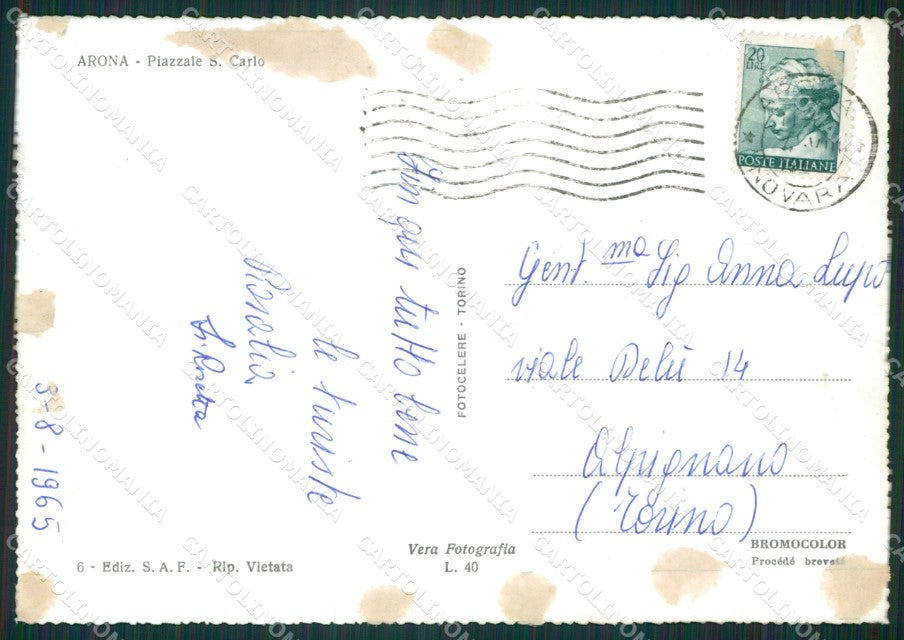 ARONA - Piazzale S. Carlo
20
LIRE
POSTE ITALIANE
NOVARA
Fin qui tutto bene
le turiste
Rosalia
3-8-1965
FOTOCELERE - TORINO
Gent.ma Sig Anna Lupo
viale 14
Alpignano
(Torino)
Vera Fotografia
L. 40
BROMOCOLOR
Procédé breveté
6 - Ediz. S. A. F. - Rip. Vietata
CARTOLINOMANIA